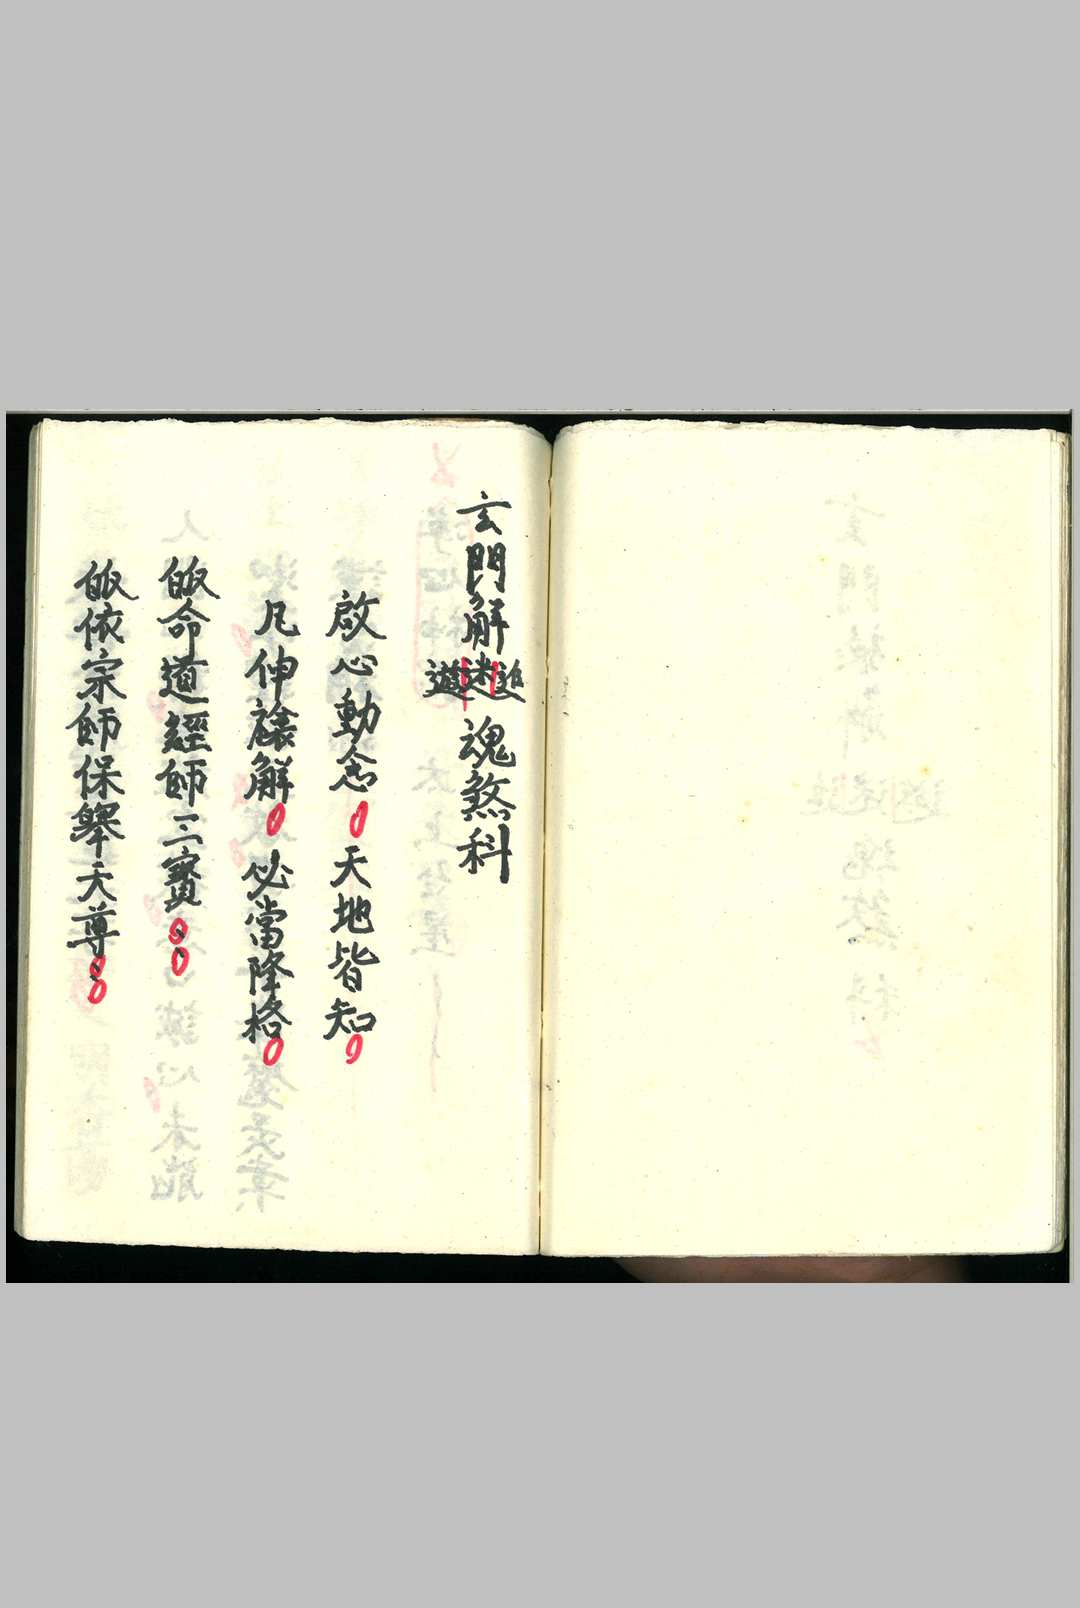 玄門解追迷遊魂煞科
啟心動念 天地皆知
凡伸禳解 必當降格
皈命道經師三寶
皈依宗師保舉天尊